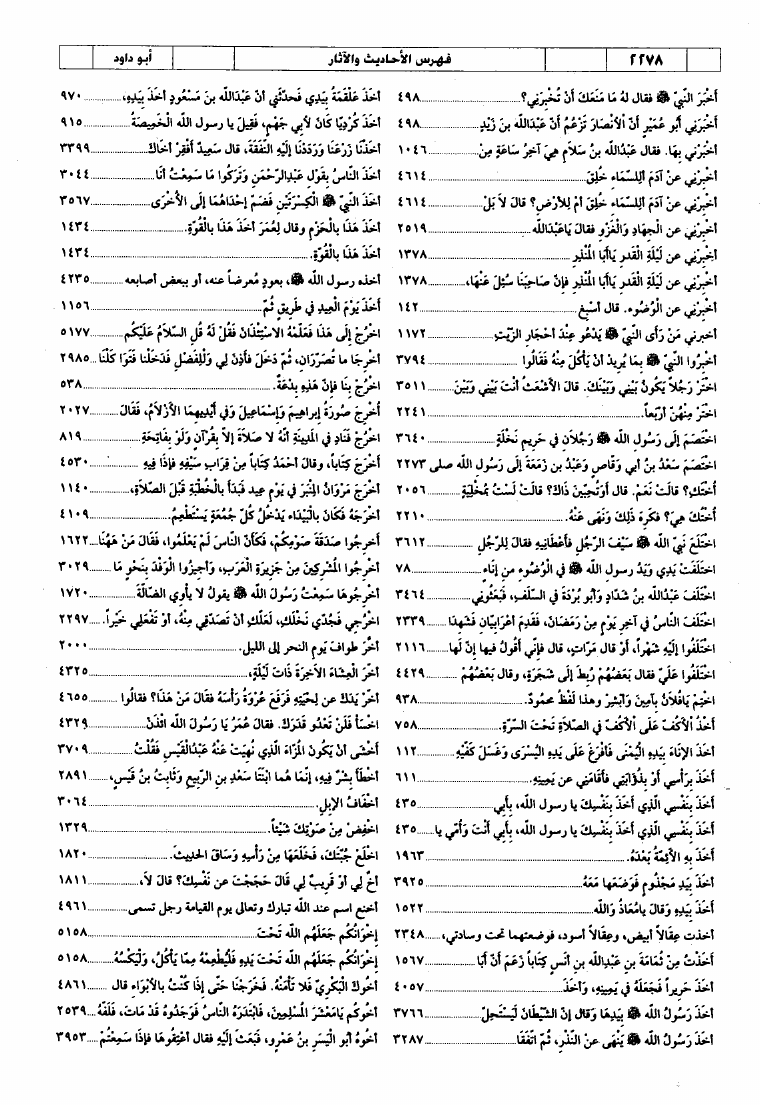 ٢٢٧٨
فهرس الأحاديث والآثار
أبو داود
أَخْبَرَ النَّبِيَّ ﷺ فقال لَهُ مَا مَنَعَكَ أَنْ تُخْبِرَنِي؟ ٤٩٨
أَخْبَرَنِي أَبُو عُمَيْرٍ أَنَّ الأَنْصَارَ تَزْعُمُ أَنَّ عَبْدَاللَّه بنَ زَيْدٍ ٤٩٨
أَخْبِرْنِي بِهَا. فقال عَبْدُاللَّه بنُ سَلاَمٍ هِيَ آخِرُ سَاعَةٍ مِنْ ١٠٤٦
أَخْبِرْنِي عن آدَمَ أَلِلسَّمَاءِ خُلِقَ ٤٦١٤
أَخْبِرْنِي عن آدَمَ أَلِلسَّمَاءِ خُلِقَ أَمْ لِلأَرْضِ؟ قَالَ لاَ بَلْ ٤٦١٤
أَخْبِرْنِي عن الْجِهَادِ وَالْغَزْوِ فَقَالَ يَاعَبْدَاللَّه ٢٥١٩
أَخْبِرْنِي عن لَيْلَةِ الْقَدرِ يَاأَبَا المُنْذِرِ ١٣٧٨
أَخْبِرْنِي عن لَيْلَةِ الْقَدرِ يَاأَبَا المُنْذِرِ فإِنَّ صَاحِبَنَا سُئِلَ عَنْهَا، ١٣٧٨
أَخْبِرْنِي عن الْوُضُوءِ. قال أَسْبِغِ ١٤٢
أخبرني مَنْ رَأَى النَّبيَّ ﷺ يَدْعُو عِنْدَ أَحْجَارِ الزَّيْتِ ١١٧٢
أَخْبِرُوا النَّبيَّ ﷺ بِمَا يُرِيدُ أَنْ يَأْكُلَ مِنْهُ فَقَالُوا ٣٧٩٤
اخْتَرْ رَجُلاً يَكُونُ بَيْنِي وَبَيْنَكَ. قالَ الأَشْعَثُ أَنْتَ بَيْنِي وَبَيْنَ ٣٥١١
اخْتَرْ مِنْهُنَّ أَرْبَعاً. ٢٢٤١
اخْتَصَمَ إِلَى رَسُولِ اللَّه ﷺ رَجُلاَنِ في حَرِيمِ نَخْلَةٍ ٣٦٤٠
اخْتَصَمَ سَعْدُ بنُ أَبي وَقَّاصٍ وَعَبْدُ بن زَمْعَةَ إِلَى رَسُولِ اللَّه صلى ٢٢٧٣
أُخْتَكِ؟ قالَتْ نَعَمْ. قال أَوَتُحِبِّينَ ذَاكَ؟ قالَتْ لَسْتُ بِمُخْلِيَةٍ ٢٠٥٦
أُخْتُكَ هِيَ؟ فَكَرِهَ ذَلِكَ وَنَهَى عَنْهُ. ٢٢١٠
اخْتَلَعَ نَبِيُّ اللَّه ﷺ سَيْفَ الرَّجُلِ فَأَعْطَانِيهِ فقالَ لِلرَّجُلِ ٣٦١٢
اخْتَلَفَتْ يَدِي وَيَدُ رسولِ اللَّه ﷺ في الْوُضُوءِ من إِنَاءٍ ٧٨
اخْتَلَفَ عَبْدُاللَّه بنُ شَدَّادٍ وَأَبو بُرْدَةَ في السَّلَفِ، فَبَعَثُونِي ٣٤٦٤
اخْتَلَفَ النَّاسُ في آخِرِ يَوْمٍ مِنْ رَمَضَانَ، فَقَدِمَ أَعْرَابِيَّانِ فَشَهِدَا ٢٣٣٩
اخْتَلَفُوا إِلَيْهِ شَهْراً، أَوْ قال مَرَّاتٍ، قال فإِنِّي أَقُولُ فيها إِنَّ لَهَا ٢١١٦
اخْتَلَفُوا عَلَيَّ فقال بَعْضُهُمْ رُبِطَ إِلَى شَجَرَةٍ، وقال بَعْضُهُمْ ٤٤٢٩
اخْتِمْ يَافُلاَنُ بآمِينَ وَأَبْشِرْ وهذا لَفْظُ محمُودٍ. ٩٣٨
أَخْذُ الأَكُفِّ عَلَى الأَكُفِّ في الصَّلاَةِ تَحْتَ السُّرَّةِ. ٧٥٨
أَخَذَ الإِنَاءَ بِيَدِهِ الْيُمْنَى فَأَفْرَغَ عَلَى يَدِهِ الْيُسْرَى وَغَسَلَ كَفَّيْهِ ١١٢
أَخَذَ بَرَأْسِي أَوْ بِذُؤَابَتِي فأَقَامَنِي عن يَمِينِهِ. ٦١١
أَخَذَ بِنَفْسِي الَّذي أَخَذَ بَنَفْسِكَ يا رسولَ اللَّه، بِأَبِي ٤٣٥
أَخَذَ بِنَفْسِي الَّذي أَخَذَ بَنَفْسِكَ يا رسولَ اللَّه، بِأَبي أَنْتَ وَأُمِّي يا ٤٣٥
أَخَذَ بِهِ الأَئِمَّةُ بَعْدَهُ. ١٩٦٣
أَخَذَ بِيَدِ مَجْذُومٍ فَوَضَعَها مَعَهُ ٣٩٢٥
أَخَذَ بِيَدِهِ وَقالَ يامُعَاذُ وَاللَّه ١٥٢٢
أخذت عِقَالاً أبيضَ، وعِقَالاً أسود، فوضعتهما تحت وسادتي، ٢٣٤٨
أَخَذْتُ مِنْ ثُمَامَةَ بنِ عَبْدِاللَّه بنِ أَنَسٍ كِتَاباً زَعَمَ أَنَّ أَبَا ١٥٦٧
أَخَذَ حَرِيراً فَجَعَلَهُ في يَمِينِهِ، وَأَخَذَ ٤٠٥٧
أَخَذَ رَسُولُ اللَّه ﷺ بِيَدِهَا وَقالَ إِنَّ الشَّيْطَانَ لَيَسْتَحِلُّ ٣٧٦٦
أَخَذَ رَسُولُ اللَّه ﷺ يَنْهَى عن النَّذْرِ، ثُمَّ اتَّفَقَا ٣٢٨٧
أَخَذَ عَلْقَمَةُ بِيَدِي فَحَدَّثَنِي أَنَّ عَبْدَاللَّه بنَ مَسْعُودٍ أَخَذَ بِيَدِهِ، ٩٧٠
أَخَذَ كُرْدِيًا كَانَ لأَبي جَهْمٍ، فَقِيلَ يا رسولَ اللَّه الْخَمِيصَةُ ٩١٥
أَخَذْنَا زَرْعَنَا وَرَدَدْنَا إِلَيْهِ النَّفَقَةَ، قال سَعِيدٌ أَفْقِرْ أَخَاكَ ٣٣٩٩
أَخَذَ النَّاسُ بِقَوْلِ عَبْدِالرَّحْمَنِ وَتَرَكُوا مَا سَمِعْتُ أَنَا ٣٠٤٤
أَخَذَ النَّبيُّ ﷺ الْكِسْرَتَيْنِ فَضَمَّ إِحْدَاهُمَا إِلَى الأُخْرَى ٣٥٦٧
أَخَذَ هَذَا بِالْحَزْمِ وقال لِعُمَرَ أَخَذَ هَذَا بالْقُوَّةِ. ١٤٣٤
أَخَذَ هَذَا بِالْقُوَّةِ. ١٤٣٤
أخذه رسول اللَّه ﷺ، بعودٍ مُعرضاً عنه، أو ببعض أصابعه ٤٢٣٥
أَخَذَ يَوْمَ الْعِيدِ في طَرِيقٍ ثُمَّ ١١٥٦
اخْرُجْ إِلَى هَذَا فَعَلِّمْهُ الاسْتِئْذَانَ فَقُلْ لَهُ قُلِ السَّلاَمُ عَلَيْكُم ٥١٧٧
أَخْرِجَا ما تُصَرِّرَانِ، ثُمَّ دَخَلَ فَأَذِنَ لِي وَلِلْفَضْلِ فَدَخَلْنَا فَتَوَاكَلْنَا ٢٩٨٥
اخْرُجْ بِنَا فإِنَّ هَذِهِ بِدْعَةٌ. ٥٣٨
أُخْرِجَ صُورَةُ إِبراهِيمَ وَإِسْمَاعِيلَ وَفي أَيْدِيهِمَا الأَزْلاَمُ، فَقَالَ ٢٠٢٧
اخْرُجْ فَنَادِ في المَدِينَةِ أَنَّهُ لا صَلاَةَ إِلاَّ بِقُرْآنٍ وَلَوْ بِفَاتِحَةِ ٨١٩
أَخْرَجَ كِتَاباً، وقال أَحْمَدُ كِتَاباً مِنْ قِرَابِ سَيْفِهِ فإِذَا فِيهِ ٤٥٣٠
أَخْرَجَ مَرْوَانُ المِنْبَرَ في يَوْمِ عِيدٍ فَبَدَأَ بالْخُطْبَةِ قَبْلَ الصَّلاَةِ، ١١٤٠
أَخْرَجَهُ فَكَانَ بالْبَيْدَاءِ يَدْخُلُ كُلَّ جُمُعَةٍ يَسْتَطْعِمُ. ٤١٠٩
أَخْرِجُوا صَدَقَةَ صَوْمِكُمْ، فَكَأَنَّ النَّاسَ لَمْ يَعْلَمُوا، فقَالَ مَنْ هَهُنَا ١٦٢٢
أَخْرِجُوا المُشْرِكِينَ مِنْ جَزِيرَةِ الْعَرَبِ، وَأَجِيزُوا الْوَفْدَ بِنَحْوِ مَا ٣٠٢٩
أَخْرِجُوهَا سَمِعْتُ رَسُولَ اللَّه ﷺ يقولُ لاَ يأْوِي الضَّالَّةَ ١٧٢٠
اخْرُجِي فَجُدِّي نَخْلَكِ، لَعَلَّكِ أَنْ تَصَدَّقِي مِنْهُ، أَوْ تَفْعَلِي خَيْراً. ٢٢٩٧
أَخَّرَ طوافَ يَوْمِ النحر إلى الليل. ٢٠٠٠
أَخَّرَ الْعِشَاءَ الآخِرَةَ ذَاتَ لَيْلَةٍ، ٤٣٢٥
أَخِّرْ يَدَكَ عن لِحْيَتِهِ فَرَفَعَ عُرْوَةُ رَأْسَهُ فقَالَ مَنْ هَذَا؟ فقالُوا ٤٦٥٥
اخْسَأْ فَلَنْ تَعْدُوَ قَدْرَكَ. فقالَ عُمَرُ يَا رَسُولَ اللَّه ائْذَنْ ٤٣٢٩
أَخْشَى أَنْ يَكُونَ المُزَّاءَ الَّذِي نُهِيَتْ عَنْهُ عَبْدُالْقَيْسِ فَقُلْتُ ٣٧٠٩
أَخْطَأَ بِشْرٌ فِيهِ، إِنَّمَا هُما ابْنَتَا سَعْدِ بنِ الرَّبِيعِ وَثَابِتُ بنُ قَيْسٍ، ٢٨٩١
أَخْفَافُ الإِبِلِ. ٣٠٦٤
اخْفِضْ مِنْ صَوْتِكَ شَيْئاً. ١٣٢٩
اخْلَعْ جُبَّتَكَ، فَخَلَعَهَا مِنْ رَأْسِهِ وَسَاقَ الحَدِيثَ. ١٨٢٠
أَخٌ لِي أَوْ قَرِيبٌ لِي قَالَ حَجَجْتَ عن نَفْسِكَ؟ قالَ لاَ، ١٨١١
أخنع اسم عند اللَّه تبارك وتعالى يوم القيامة رجل تسمى ٤٩٦١
إِخْوَانُكُم جَعَلَهُم اللَّه تَحْتَ ٥١٥٨
إِخْوَانُكُم جَعَلَهُم اللَّه تَحْتَ يَدِهِ فَلْيُطْعِمْهُ مِمَّا يَأْكُلُ، وَلْيَكْسُهُ ٥١٥٨
أَخُوكَ الْبَكْرِيُّ فَلاَ تَأْمَنْهُ. فَخَرَجْنَا حَتَّى إِذَا كُنْتُ بالأَبْوَاءِ قال ٤٨٦١
أَخُوكُم يَامَعْشَرَ المُسْلِمِينَ، فَابْتَدَرَهُ النَّاسُ فَوَجَدُوهُ قَدْ مَاتَ، فَلَفَّهُ ٢٥٣٩
أَخُوهُ أَبُو الْيَسَرِ بنُ عَمْرٍو، فَبَعَثَ إِلَيْهِ فقال أَعْتِقُوهَا فإِذَا سَمِعْتُمْ ٣٩٥٣